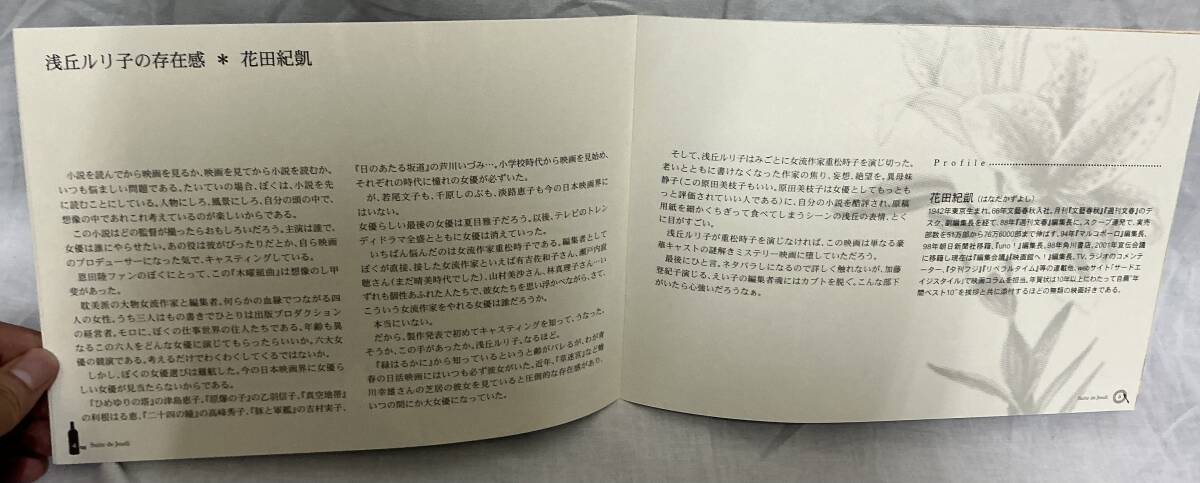 浅丘ルリ子の存在感 * 花田紀凱
小説を読んでから映画を見るか、映画を見てから小説を読むか、
いつも悩ましい問題である。たいていの場合、ぼくは、小説を先
に読むことにしている。人物にしろ、風景にしろ、自分の頭の中で、
想像の中であれこれ考えているのが楽しいからである。
この小説はどの監督が撮ったらおもしろいだろう。主演は誰で、
女優は誰にやらせたい。あの役は彼がぴったりだとか、自ら映画
のプロデューサーになった気で、キャスティングしている。
恩田陸ファンのぼくにとって、この『木曜組曲』は想像のし甲
斐があった。
耽美派の大物女流作家と編集者。何らかの血縁でつながる四
人の女性。うち三人はもの書きでひとりは出版プロダクション
の経営者。モロに、ぼくの仕事世界の住人たちである。年齢も異
なるこの六人をどんな女優に演じてもらったらいいか。六大女
優の競演である。考えるだけでわくわくしてくるではないか。
しかし、ぼくの女優選びは難航した。今の日本映画界に女優ら
しい女優が見当たらないからである。
『ひめゆりの塔』の津島恵子、『原爆の子』の乙羽信子、『真空地帯』
の利根はる恵、『二十四の瞳』の高峰秀子、『豚と軍艦』の吉村実子、
『日のあたる坂道』の芦川いづみ…。小学校時代から映画を見始め、
それぞれの時代に憧れの女優が必ずいた。
が、若尾文子も、千原しのぶも、淡路恵子も今の日本映画界に
はいない。
女優らしい最後の女優は夏目雅子だろう。以後、テレビのトレン
ディドラマ全盛とともに女優は消えていった。
いちばん悩んだのは女流作家重松時子である。編集者として
ぼくが直接、接した女流作家といえば有吉佐和子さん、瀬戸内寂
聴さん(まだ晴美時代でした)、山村美沙さん、林真理子さん…い
ずれも個性あふれた人たちで、彼女たちを思い浮かべながら、さて、
こういう女流作家をやれる女優は誰だろうか。
本当にいない。
だから、製作発表で初めてキャスティングを知って、うなった。
そうか、この手があったか。浅丘ルリ子、なるほど。
『緑はるかに』から知っているというと齢がバレるが、わが青
春の日活映画にはいつも必ず彼女がいた。近年、『草迷宮』など蜷
川幸雄さんの芝居の彼女を見ていると圧倒的な存在感があり、
いつの間にか大女優になっていた。
4
Suite de Jeudi
そして、浅丘ルリ子はみごとに女流作家重松時子を演じ切った。
老いとともに書けなくなった作家の焦り、妄想、絶望を。異母妹
静子(この原田美枝子もいい。原田美枝子は女優としてもっとも
っと評価されていい人である)に、自分の小説を酷評され、原稿
用紙を細かくちぎって食べてしまうシーンの浅丘の表情、とく
に目がすごい。
浅丘ルリ子が重松時子を演じなければ、この映画は単なる豪
華キャストの謎解きミステリー映画に堕していただろう。
最後にひと言。ネタバラしになるので詳しく触れないが、加藤
登紀子演じる、えい子の編集者魂にはカブトを脱ぐ。こんな部下
がいたら心強いだろうなぁ。
Profile
花田紀凱(はなだかずよし)
1942年東京生まれ。66年文藝春秋入社。月刊『文藝春秋』『週刊文春』のデ
スク、副編集長を経て、88年『週刊文春』編集長に。スクープ連発で、実売
部数を51万部から76万6000部まで伸ばす。94年『マルコポーロ』編集長。
98年朝日新聞社移籍、『uno!』編集長。98年角川書店、2001年宣伝会議
に移籍し現在は『編集会議』『映画館へ!』編集長。TV、ラジオのコメンテ
ーター、『夕刊フジ』『リベラルタイム』等の連載他、webサイト『サードエ
イジスタイル』で映画コラムを担当。年賀状は10年以上にわたって自薦“年
間ベスト10”を挨拶と共に添付するほどの無類の映画好きである。
Suite de Jeudi